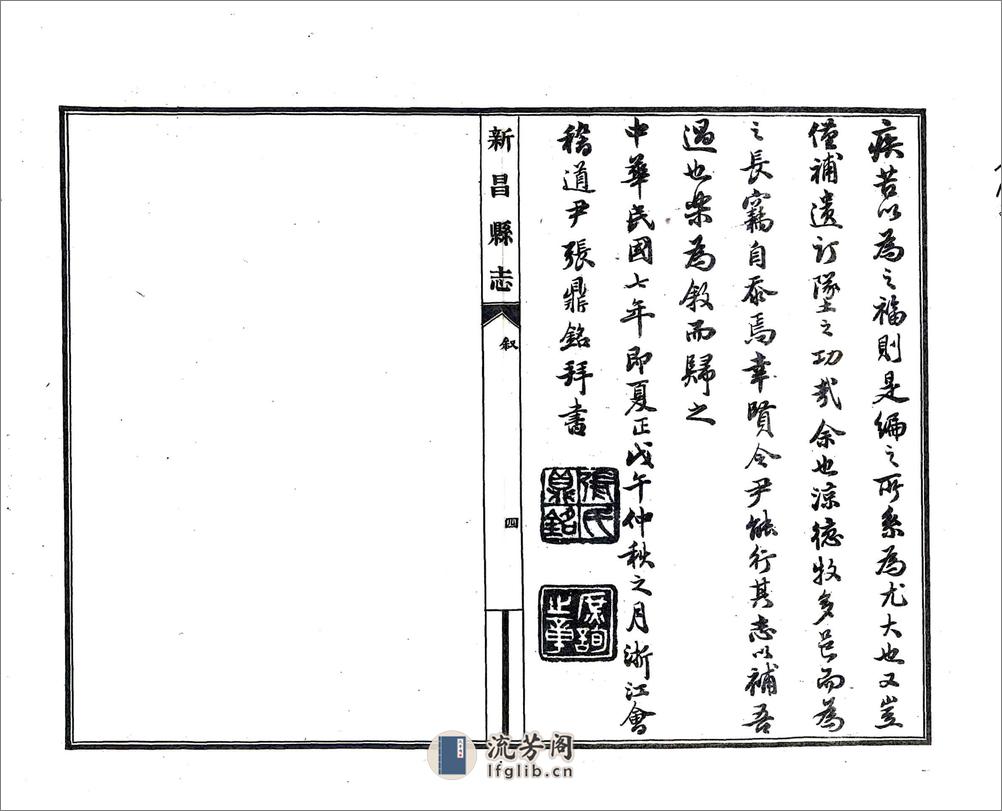 疾苦以為之福則是編之所系為尤大也又豈
僅補遺訂墜之功哉余也涼德牧多邑而為
之長竊自忝焉幸賢令尹能行其志以補吾
過也樂為敘而歸之
中華民國七年即夏正戊午仲秋之月浙江會
稽道尹張鼎銘拜書
張氏鼎銘
新昌縣志
叙
四
流芳阁
lfglib.cn